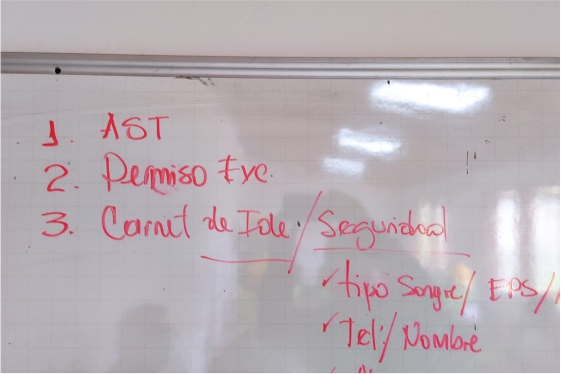 1. AST
2. Permiso Exc.
3. Carnet de Ide. / Seguridad
✓ tipo Sangre / EPS /
✓ Tel: / Nombre